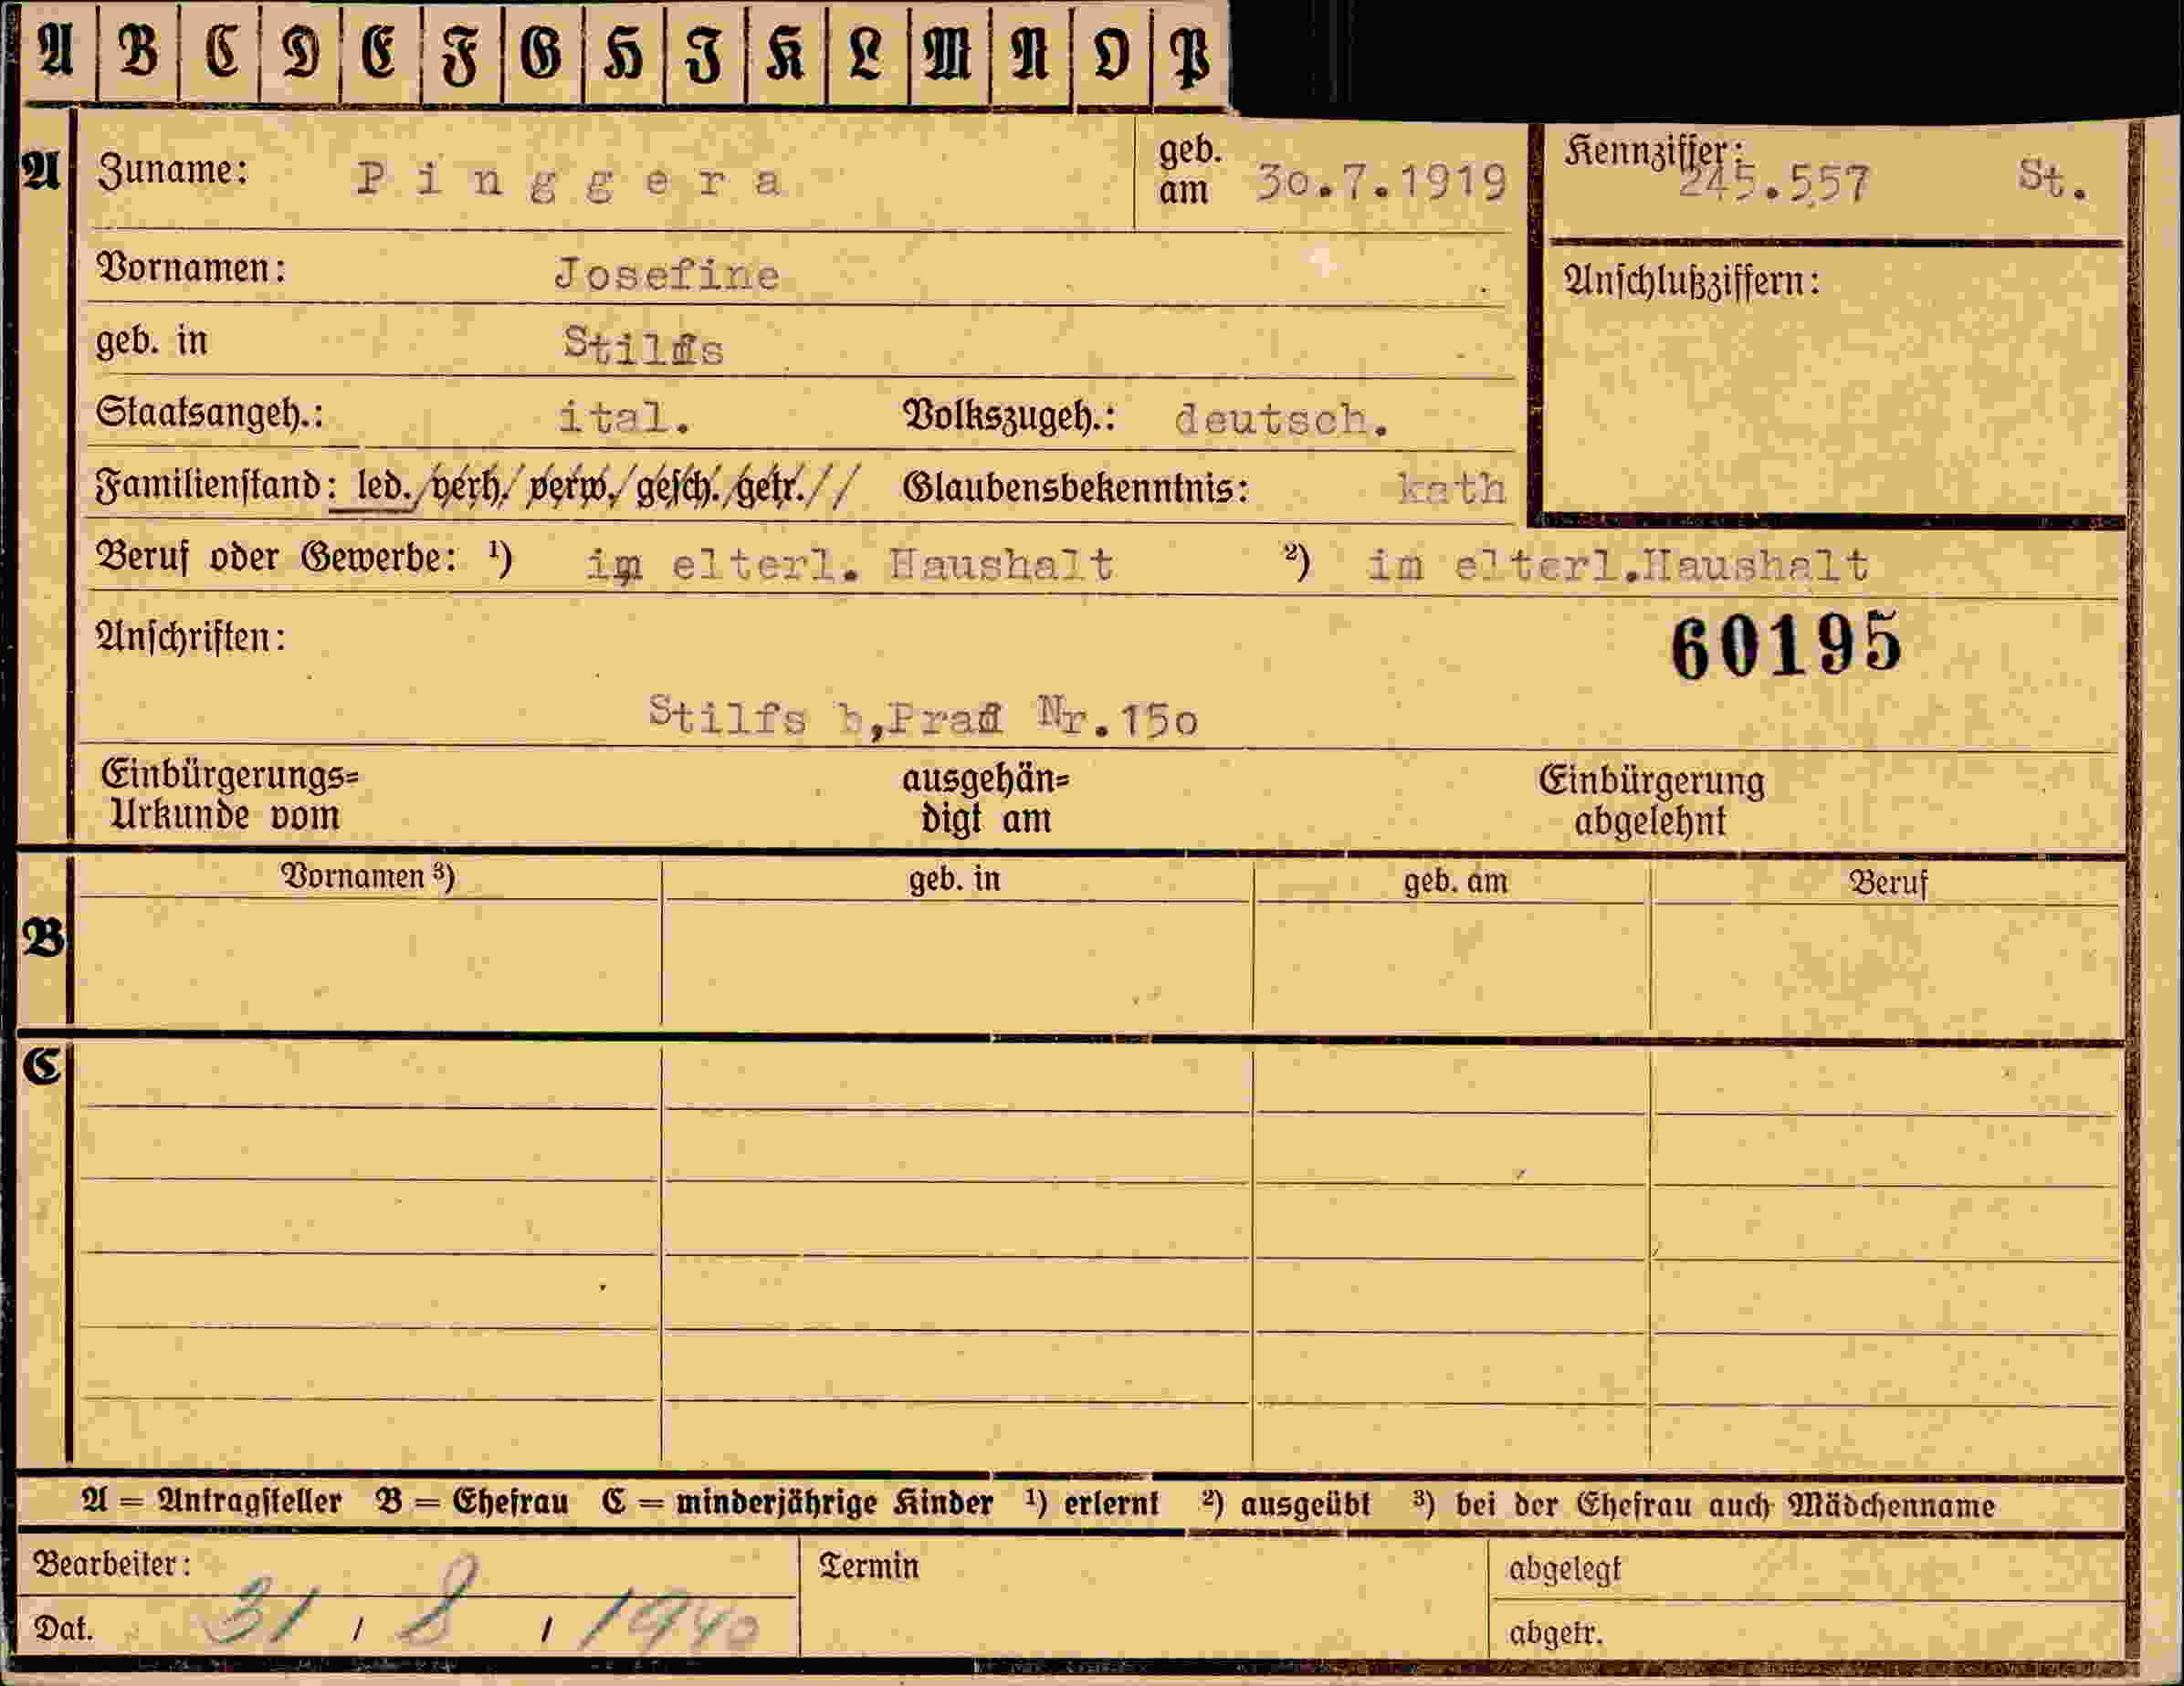 A B C D E F G H I K L M N O P
A Zuname: Pinggera geb. am 30.7.1919 Kennziffer: 245.557 St.
Vornamen: Josefine Anschlußziffern:
geb. in Stilfs
Staatsangeh.: ital. Volkszugeh.: deutsch.
Familienstand: led./verh./verw./gesch./getr.// Glaubensbekenntnis: kath
Beruf oder Gewerbe: ¹) im elterl. Haushalt ²) im elterl.Haushalt
Anschriften: 60195
Stilfs b,Prad Nr.150
Einbürgerungs= ausgehän= Einbürgerung
Urkunde vom digt am abgelehnt
Vornamen ³) geb. in geb. am Beruf
B
C
A = Antragsteller B = Ehefrau C = minderjährige Kinder ¹) erlernt ²) ausgeübt ³) bei der Ehefrau auch Mädchenname
Bearbeiter: Termin abgelegt
Dat. 31 / 8 / 1940 abgetr.